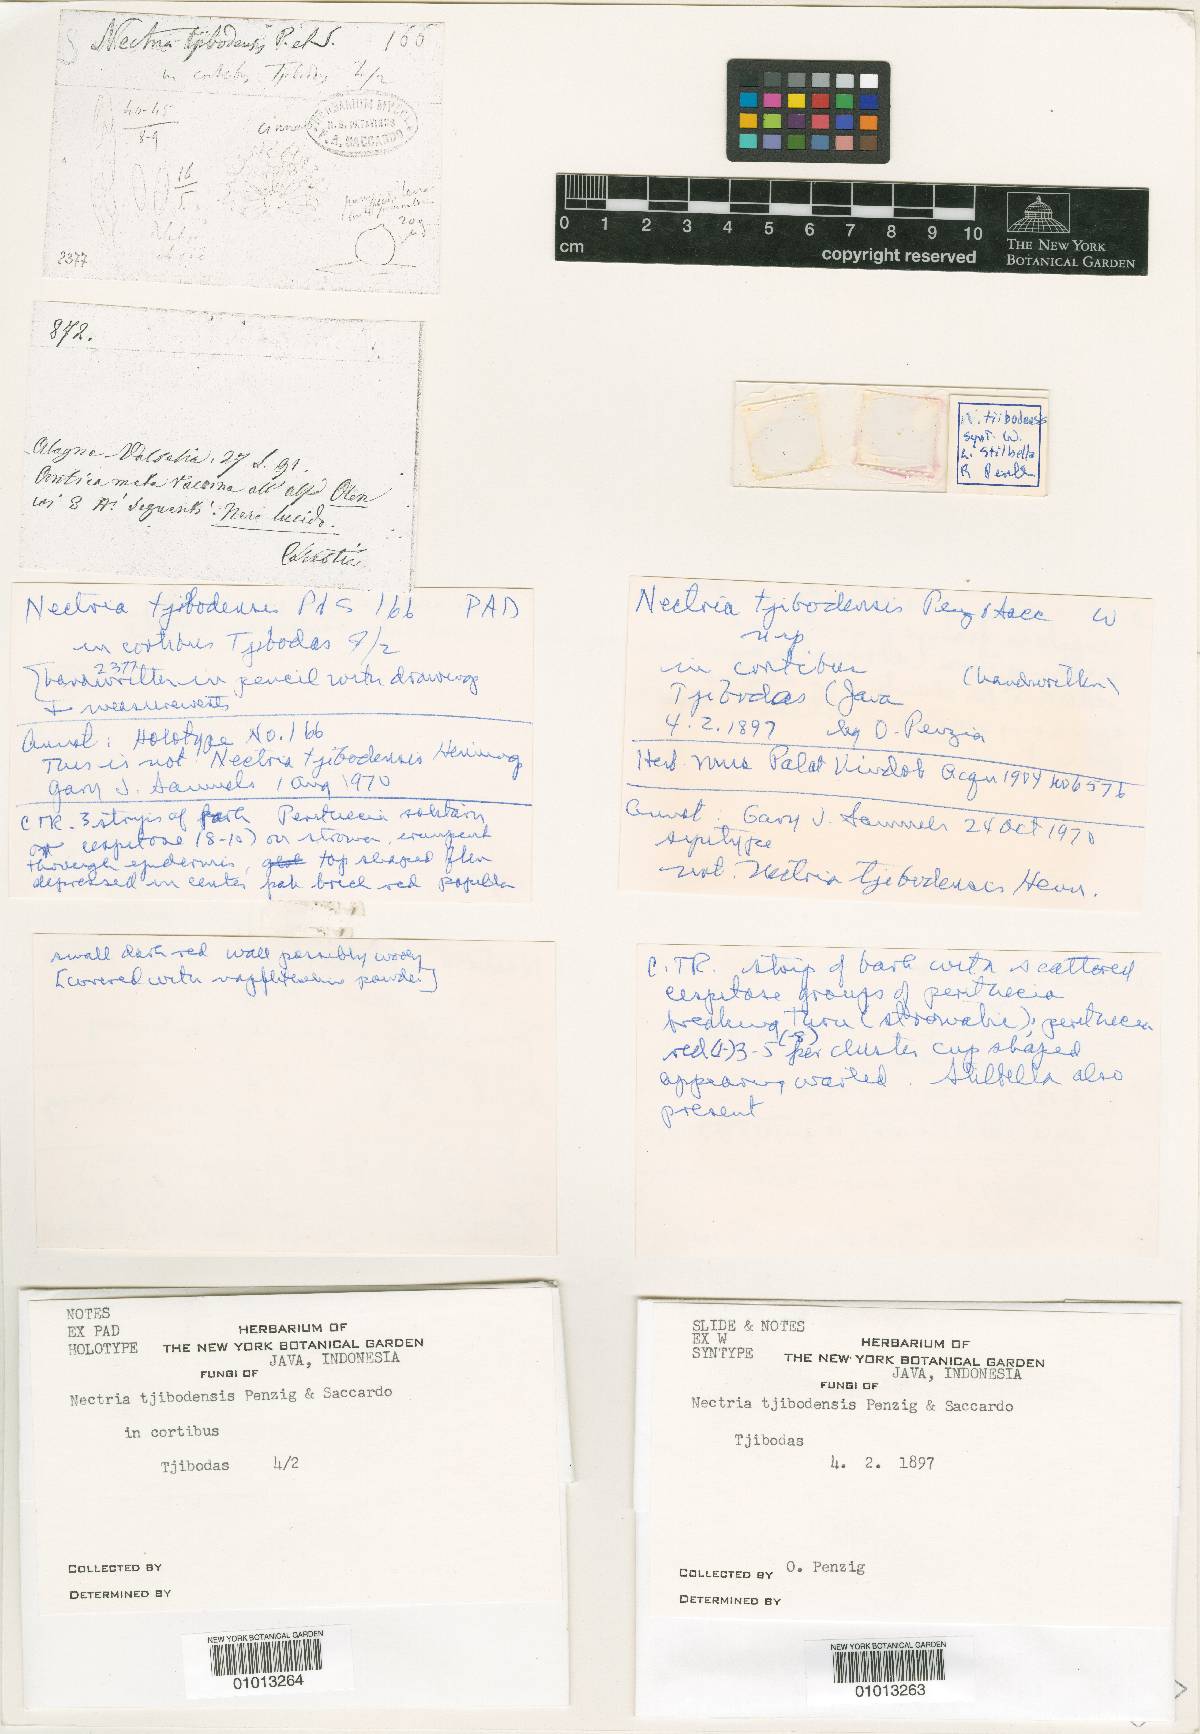 Nectria tjibodensis P. et S. 166
in cortibus Tjibodas 4/2
40-45
8-9
16
HERBARIUM MYCOL.
P. A. SACCARDO
2377
872.
Alagna Valsesia. 27
Olen
Nero lucido.
0 1 2 3 4 5 6 7 8 9 10
cm
copyright reserved
THE NEW YORK
BOTANICAL GARDEN
N. tjibodensis
synt. W.
& Stilbella
Nectria tjibodensis P&S 166 PAD
in cortibus Tjibodas 4/2
2377
[handwritten in pencil with drawings
+ measurements
Annot: Holotype No. 166
This is not Nectria tjibodensis Hennings
Gary J. Samuels 1 Aug 1970
CTR. 3 strips of bark Perithecia solitary
or cespitose (8-10) on stroma, erumpent
through epidermis, top shaped then
depressed in center dark brick red papilla
small dark red wall possibly woody
[covered with powder]
Nectria tjibodensis Penz & Sacc W
n sp
in cortibus (handwritten)
Tjibodas (Java
4.2.1897 leg O. Penzig
Herb. Mus Palat Vindob Acqu 1904 No 6576
Annot: Gary J. Samuels 24 Oct 1970
syntype
not: Nectria tjibodensis Henn.
C.TR. strip of bark with scattered
cespitose groups of perithecia
breaking thru (stromatic); perithecia
red (1-)3-5(-8) per cluster cup shaped
appearing warted. Stilbella also
present
NOTES
EX PAD
HOLOTYPE
HERBARIUM OF
THE NEW YORK BOTANICAL GARDEN
JAVA, INDONESIA
FUNGI OF
Nectria tjibodensis Penzig & Saccardo
in cortibus
Tjibodas 4/2
COLLECTED BY
DETERMINED BY
NEW YORK BOTANICAL GARDEN
01013264
SLIDE & NOTES
EX W
SYNTYPE
HERBARIUM OF
THE NEW YORK BOTANICAL GARDEN
JAVA, INDONESIA
FUNGI OF
Nectria tjibodensis Penzig & Saccardo
Tjibodas
4. 2. 1897
COLLECTED BY O. Penzig
DETERMINED BY
NEW YORK BOTANICAL GARDEN
01013263